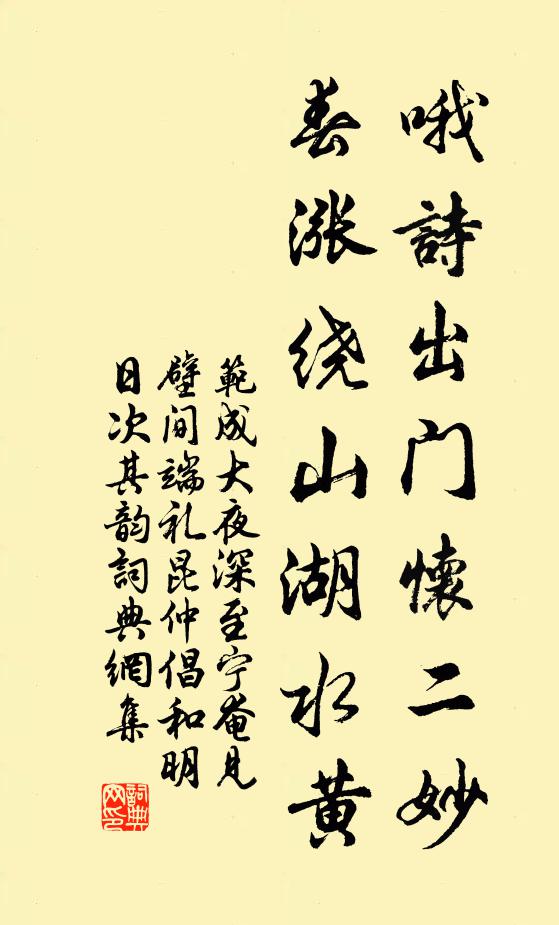 哦詩出门懷二妙
春涨绕山湖水黄
範成大夜深至宁菴見
壁间端礼昆仲倡和明
日次其韵詞典網集
詞典網印